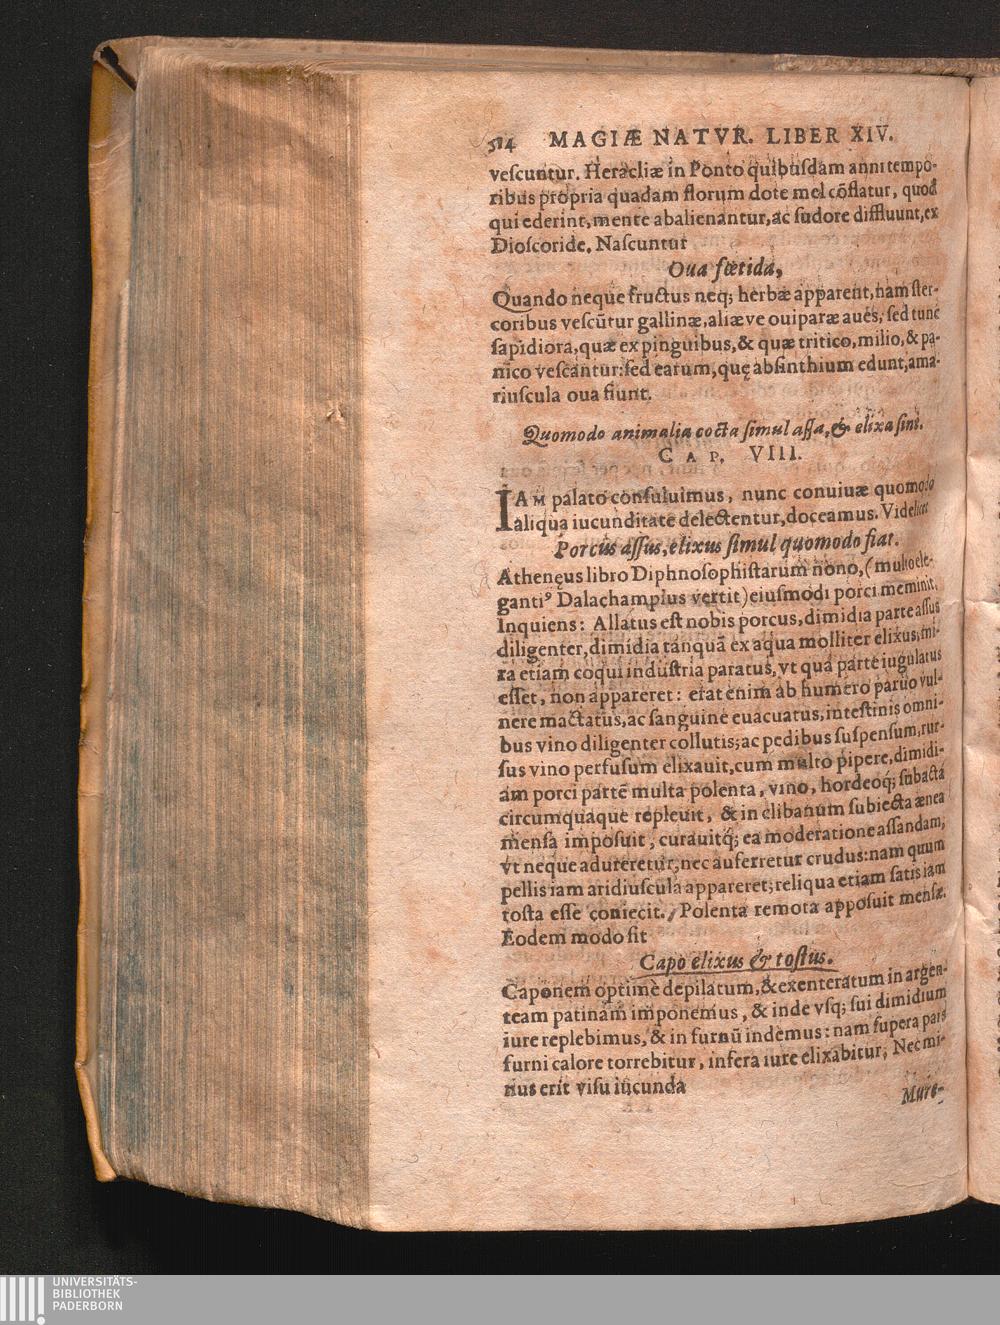 514 MAGIÆ NATVR. LIBER XIV.
veſcuntur. Heracliæ in Ponto quibuſdam anni tempo-
ribus propria quadam florum dote mel cõflatur, quod
qui ederint, mente abalienantur, ac ſudore diffluunt, ex
Dioſcoride. Naſcuntur
Oua fœtida,
Quando neque fructus neq; herbæ apparent, nam ſter-
coribus veſcũtur gallinæ, aliæve ouiparæ aues, ſed tunc
ſapidiora, quæ ex pinguibus, & quæ tritico, milio, & pa-
nico veſcantur: ſed earum, quę abſinthium edunt, ama-
riuſcula oua fiunt.
Quomodo animalia cocta ſimul aſſa, & elixa ſint.
CAP. VIII.
IAM palato conſuluimus, nunc conuiuæ quomodo
aliqua iucunditate delectentur, doceamus. Videlicet
Porcus aſſus, elixus ſimul quomodo fiat.
Athenęus libro Diphnoſophiſtarum nono, (multo ele-
ganti⁹ Dalachamplus vertit) eiuſmodi porci meminit,
Inquiens: Allatus eſt nobis porcus, dimidia parte aſſus
diligenter, dimidia tanquã ex aqua molliter elixus, mi-
ra etiam coqui induſtria paratus, vt qua parte iugulatus
eſſet, non appareret: erat enim ab humero paruo vul-
nere mactatus, ac ſanguine euacuatus, inteſtinis omni-
bus vino diligenter collutis; ac pedibus ſuſpenſum, rur-
ſus vino perfuſum elixauit, cum multo pipere, dimidi-
am porci partẽ multa polenta, vino, hordeoq; ſubacta
circumquaque repleuit, & in clibanum ſubiecta ænea
menſa impoſuit, curauitq́; ea moderatione aſſandam,
vt neque adureretur, nec auferretur crudus: nam quum
pellis iam aridiuſcula appareret, reliqua etiam ſatis iam
toſta eſſe coniecit. Polenta remota appoſuit menſæ.
Eodem modo fit
Capo elixus & toſtus.
Caponem optimè depilatum, & exenteratum in argen-
team patinam imponemus, & inde vſq; ſui dimidium
iure replebimus, & in furnũ indemus: nam ſupera pars
furni calore torrebitur, infera iure elixabitur, Nec mi-
nus erit viſu iucunda
Muræ-
UNIVERSITÄTS-
BIBLIOTHEK
PADERBORN